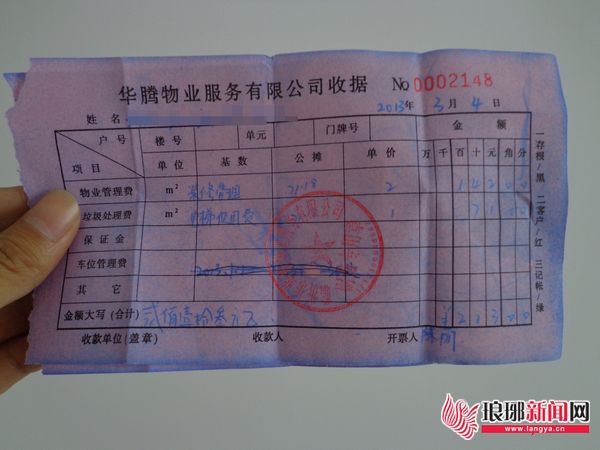 华腾物业服务有限公司收据 No 0002148
姓名 2013年 3月 4日
户号 楼号 单元 门牌号 金额
项目 单位 基数 公摊 单价 万 千 百 十 元 角 分
物业管理费 m² 装修管理 71.18 2 1 4 2 0 0
垃圾处理费 m² 1 7 1 0 0
保证金
车位管理费
其它
金额大写(合计) 贰佰壹拾叁 ¥ 2 1 3 0 0
收款单位(盖章) 收款人 开票人
一存根/黑 二客户/红 三记帐/绿
琅琊新闻网
www.langya.cn